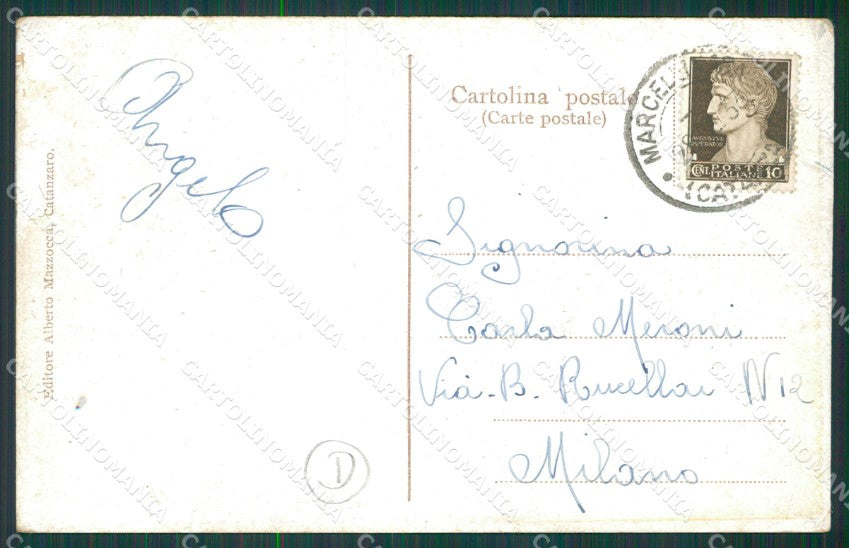 Angelo
Editore Alberto Mazzocca, Catanzaro.
Cartolina postale
(Carte postale)
AVGVSTVS
IMPERATOR
POSTE
ITALIANE
CENT. 10
Signorina
Carla Meroni
Via B. Rucellai N 12
Milano
D
CARTOLINOMANIA